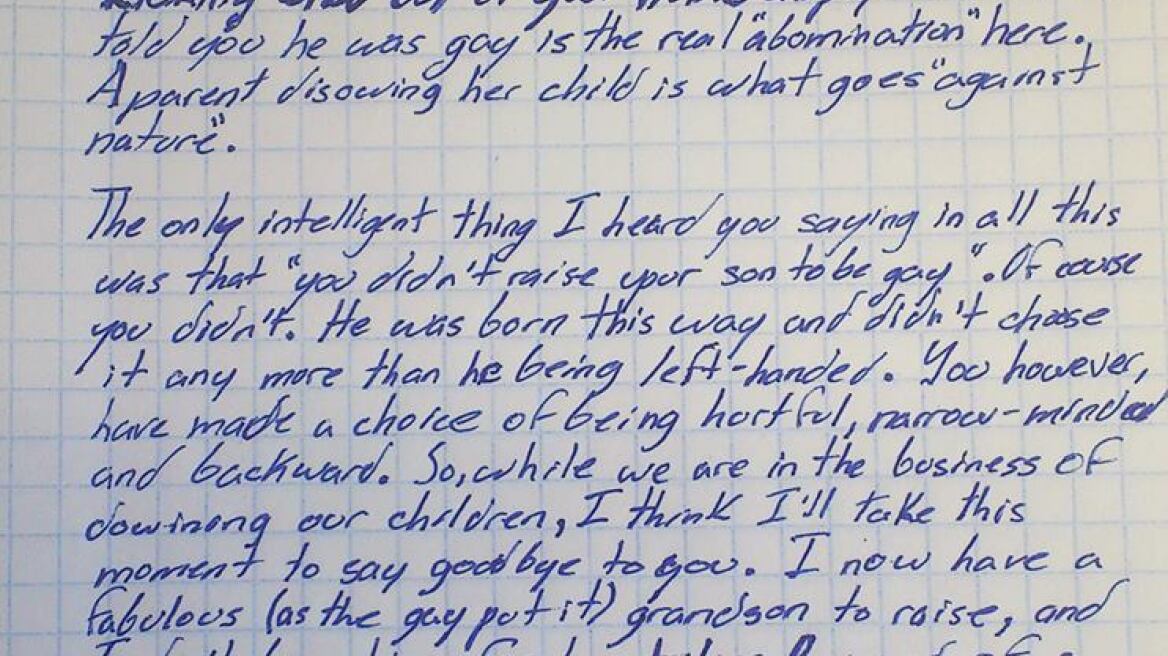 told you he was gay is the real "abomination" here.
A parent disowing her child is what goes "against
nature".
The only intelligent thing I heard you saying in all this
was that "you didn't raise your son to be gay". Of course
you didn't. He was born this way and didn't choose
it any more than he being left-handed. You however,
have made a choice of being hurtful, narrow-minded
and backward. So, while we are in the business of
dowinong our children, I think I'll take this
moment to say goodbye to you. I now have a
fabulous (as the gay put it) grandson to raise, and